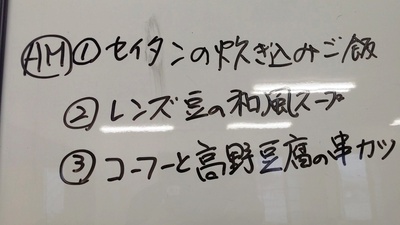 AM ① セイタンの炊き込みご飯
② レンズ豆の和風スープ
③ コーフーと高野豆腐の串カツ